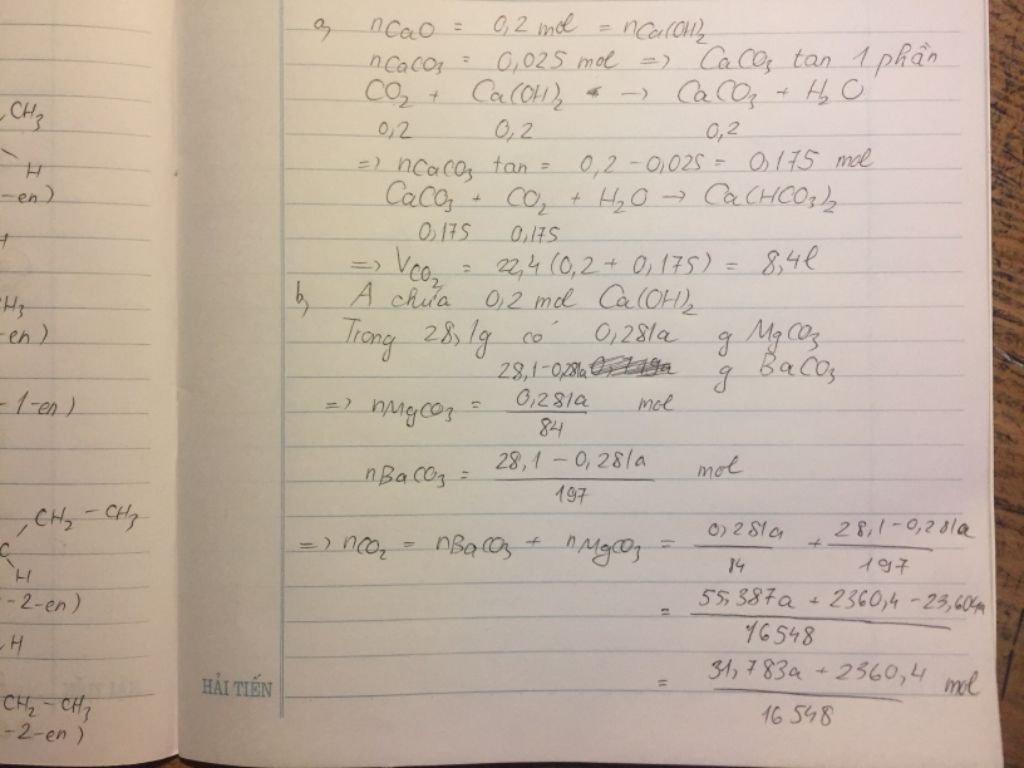 CH₃
H
-en)
H
H₃
en)
-1-en)
CH₂ - CH₃
C
H
-2-en)
H
CH₂ - CH₃
-2-en)
a, nCaO = 0,2 mol = nCa(OH)₂
nCaCO₃ = 0,025 mol => CaCO₃ tan 1 phần
CO₂ + Ca(OH)₂ → CaCO₃ + H₂O
0,2 0,2 0,2
=> nCaCO₃ tan = 0,2 - 0,025 = 0,175 mol
CaCO₃ + CO₂ + H₂O → Ca(HCO₃)₂
0,175 0,175
=> V_CO₂ = 22,4 (0,2 + 0,175) = 8,4l
b, A chứa 0,2 mol Ca(OH)₂
Trong 28,1g có 0,281a g MgCO₃
28,1-0,281a g BaCO₃
=> nMgCO₃ = 0,281a / 84 mol
nBaCO₃ = 28,1 - 0,281a / 197 mol
=> nCO₂ = nBaCO₃ + nMgCO₃ = 0,281a / 14 + 28,1-0,281a / 197
= 55,387a + 2360,4 - 23,604a / 16548
= 31,783a + 2360,4 / 16548 mol
HẢI TIẾN